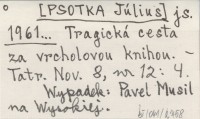 [PSOTKA Július] js.
1961... Tragická cesta
za vrcholovou knihou. -
Tatr. Nov. 8, nr 12: 4.
Wypadek: Pavel Musil
na Wysokiej.